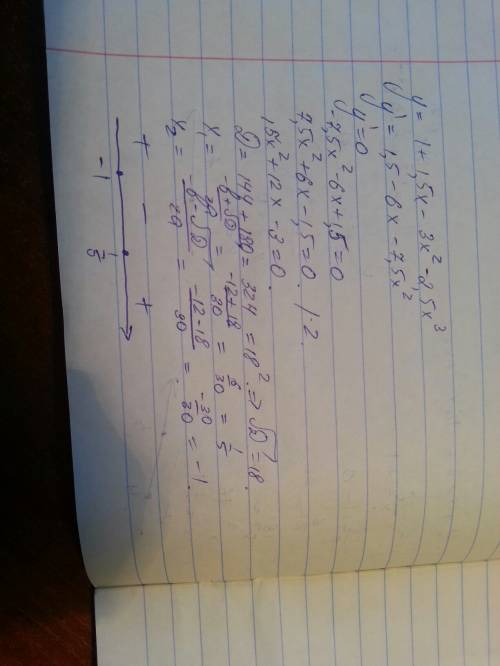 y = 1 + 1,5x - 3x² - 2,5x³
y' = 1,5 - 6x - 7,5x²
y' = 0
-7,5x² - 6x + 1,5 = 0
7,5x² + 6x - 1,5 = 0. | · 2
15x² + 12x - 3 = 0.
D = 144 + 180 = 324 = 18² => √D = 18.
x₁ = (-b + √D)/2a = (-12 + 18)/30 = 6/30 = 1/5
x₂ = (-b - √D)/2a = (-12 - 18)/30 = -30/30 = -1.
+ - +
-1 1/5